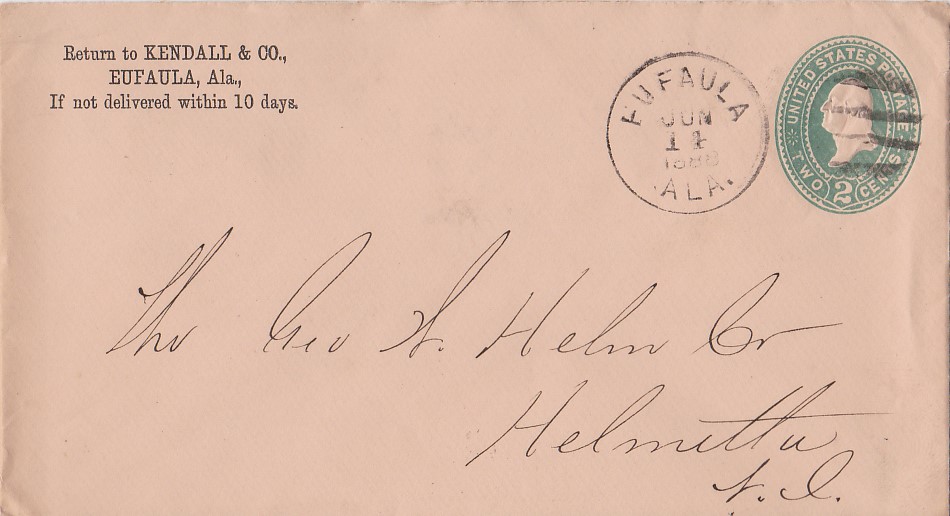 Return to KENDALL & CO.,
EUFAULA, Ala.,
If not delivered within 10 days.
EUFAULA
JUN
14
1888
ALA.
UNITED STATES POSTAGE
TWO 2 CENTS
The Geo W. Helm Co
Helmetta
N. J.